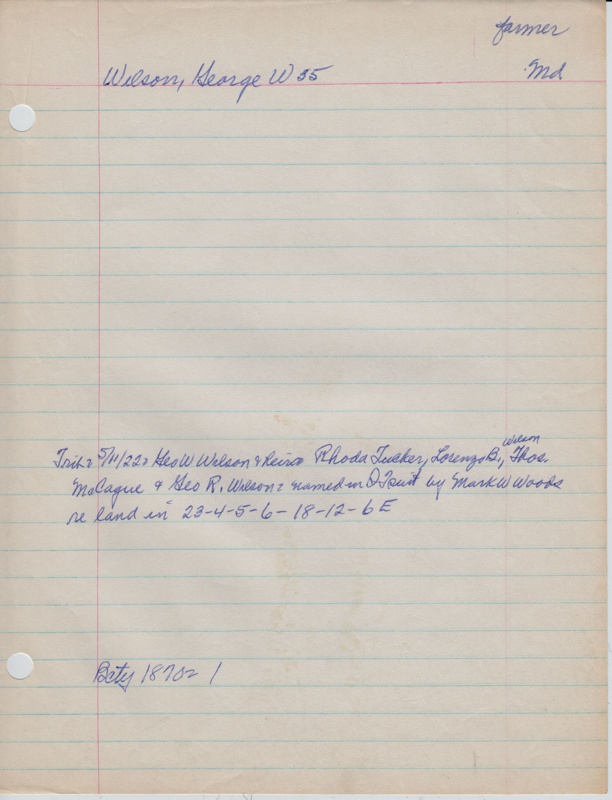 farmer
Wilson, George W 35
Md
Trib: 5/11/22: Geo W Wilson & heirs Rhoda Tucker, Lorenzo B., Wilson Thos.
McCague & Geo R. Wilson: named in Q T suit by Mark W Woods
re land in 23-4-5-6-18-12-6E
1870: 1